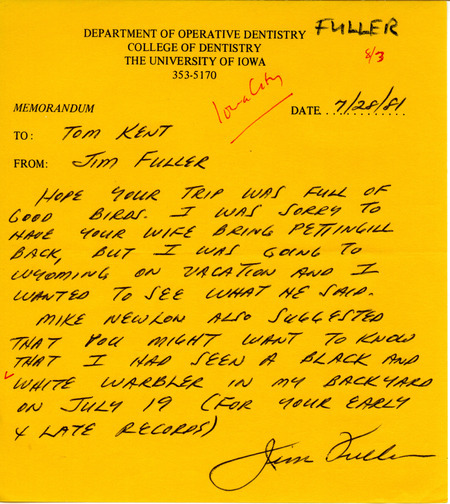 DEPARTMENT OF OPERATIVE DENTISTRY FULLER
COLLEGE OF DENTISTRY 8/3
THE UNIVERSITY OF IOWA
353-5170
Iowa City
MEMORANDUM DATE 7/28/81
TO: TOM KENT
FROM: JIM FULLER
HOPE YOUR TRIP WAS FULL OF
GOOD BIRDS. I WAS SORRY TO
HAVE YOUR WIFE BRING PETTINGILL
BACK, BUT I WAS GOING TO
WYOMING ON VACATION AND I
WANTED TO SEE WHAT HE SAID.
MIKE NEWLON ALSO SUGGESTED
THAT YOU MIGHT WANT TO KNOW
THAT I HAD SEEN A BLACK AND
✓ WHITE WARBLER IN MY BACKYARD
ON JULY 19 (FOR YOUR EARLY
& LATE RECORDS)
Jim Fuller